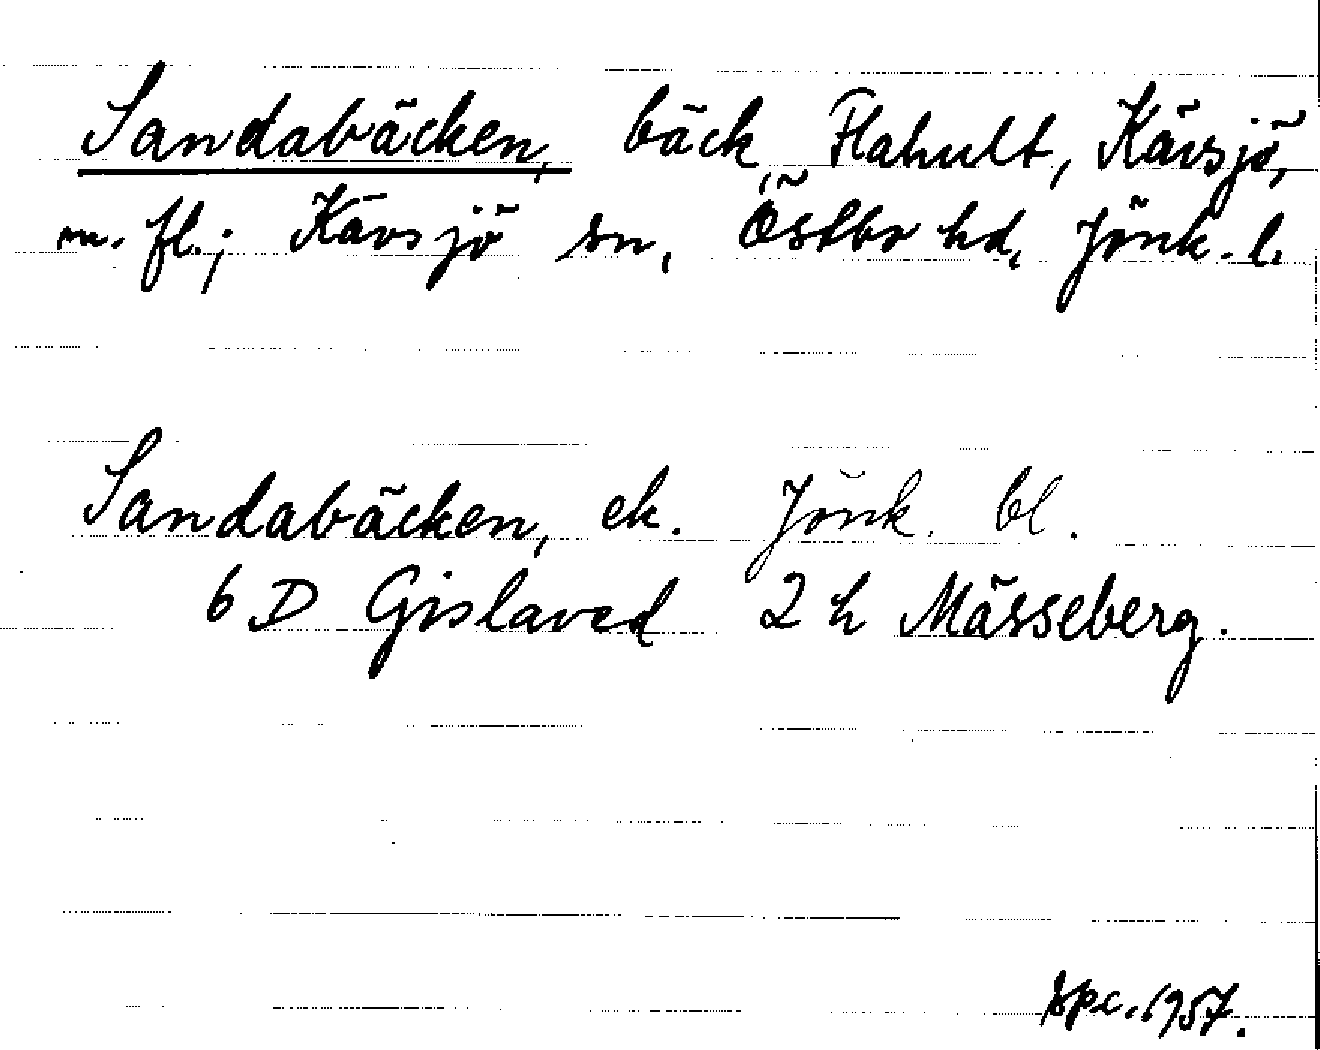 Sandabäcken, bäck, Flahult, Kävsjö,
m. fl.; Kävsjö sn, Östbo hd, Jönk. l.
Sandabäcken, ek. Jönk. bl.
6 D Gislaved 2 h Mässeberg.
1957.